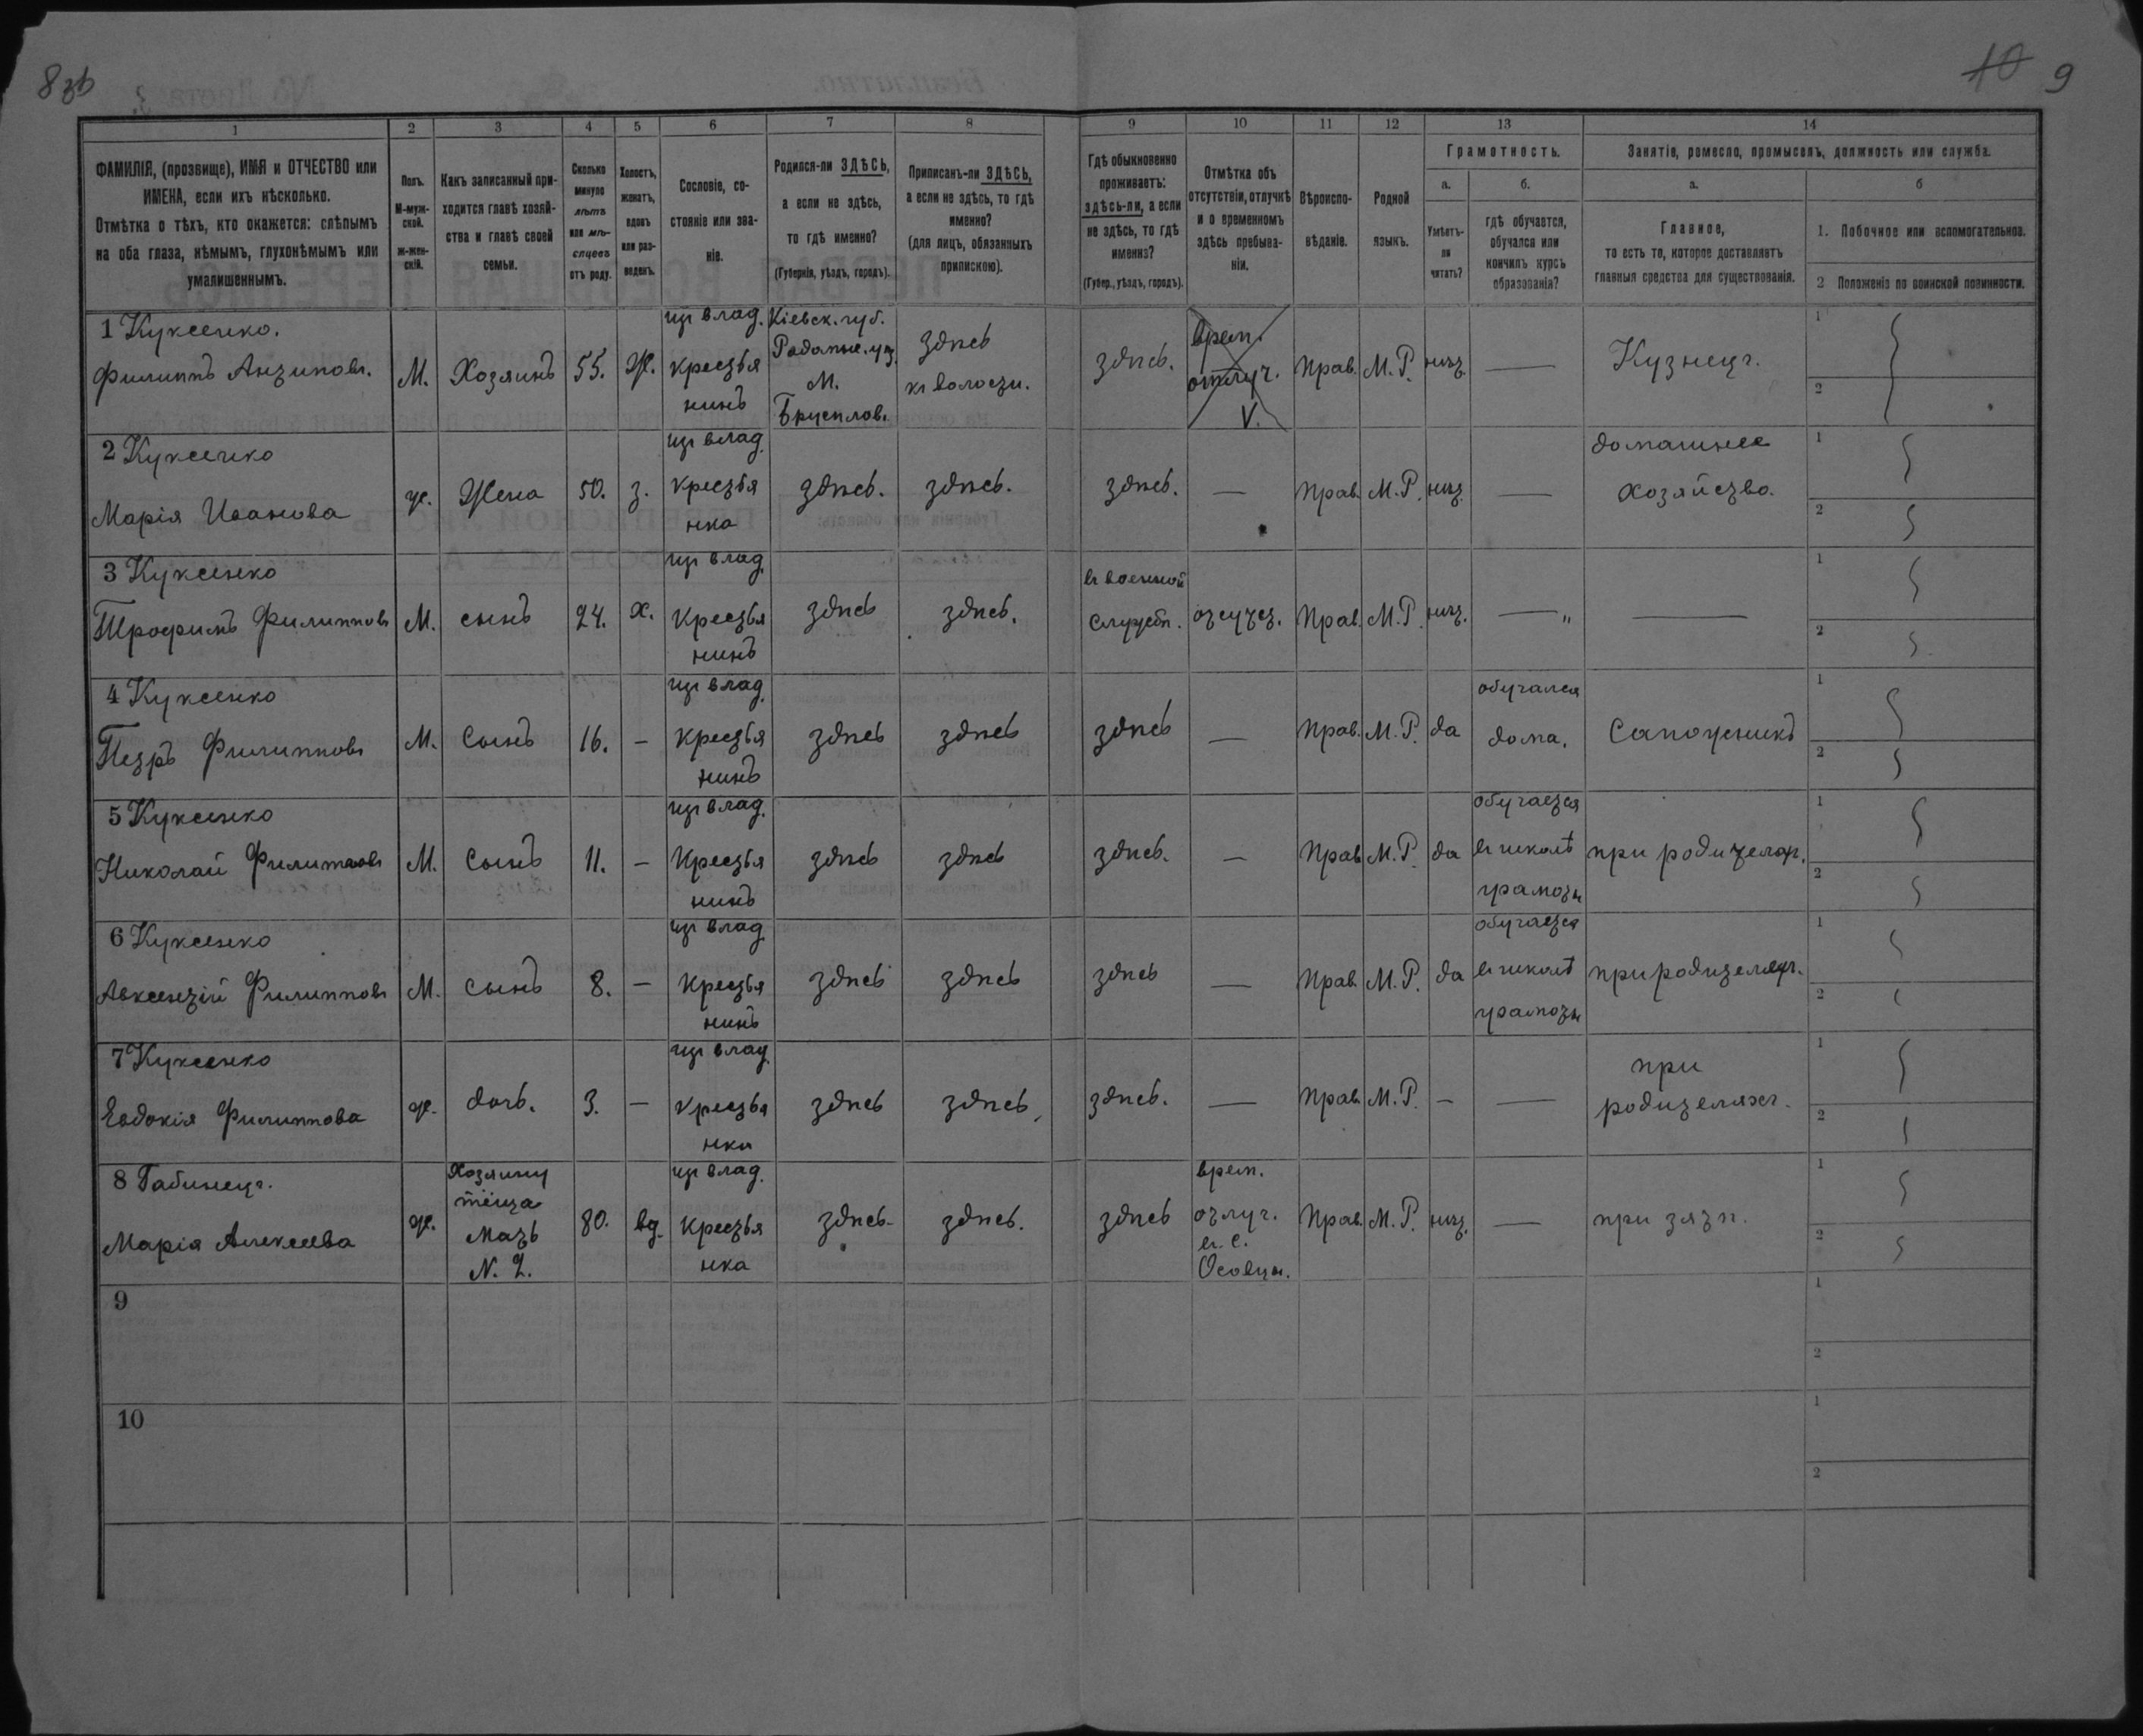 8зв
10 9
1 2 3 4 5 6 7 8 9 10 11 12 13 14
ФАМИЛІЯ, (прозвище), ИМЯ и ОТЧЕСТВО или
ИМЕНА, если ихъ нѣсколько.
Отмѣтка о тѣхъ, кто окажется: слѣпымъ
на оба глаза, нѣмымъ, глухонѣмымъ или
умалишеннымъ.
Полъ.
М-муж-
ской.
ж-жен-
скій.
Какъ записанный при-
ходится главѣ хозяй-
ства и главѣ своей
семьи.
Сколько
минуло
лѣтъ
или мѣ-
сяцевъ
отъ роду.
Холостъ,
женатъ,
вдовъ
или раз-
веденъ.
Сословіе, со-
стояніе или зва-
ніе.
Родился-ли ЗДѢСЬ,
а если не здѣсь,
то гдѣ именно?
(Губернія, уѣздъ, городъ).
Приписанъ-ли ЗДѢСЬ,
а если не здѣсь, то гдѣ
именно?
(для лицъ, обязанныхъ
припискою).
Гдѣ обыкновенно
проживаетъ:
здѣсь-ли, а если
не здѣсь, то гдѣ
именно?
(Губер., уѣздъ, городъ).
Отмѣтка объ
отсутствіи, отлучкѣ
и о временномъ
здѣсь пребыва-
ніи.
Вѣроиспо-
вѣданіе.
Родной
языкъ.
Грамотность.
а.
Умѣетъ-
ли
читать?
б.
гдѣ обучается,
обучался или
кончилъ курсъ
образованія?
Занятіе, ремесло, промыселъ, должность или служба.
а.
Главное,
то есть то, которое доставляетъ
главныя средства для существованія.
б
1. Побочное или вспомогательное.
2 Положеніе по воинской повинности.
1 Куксенко.
Филиппъ Антиповъ.
М.
Хозяинъ
55.
Ж.
изъ влад.
крестья
нинъ
Кіевск. губ.
Радомыс. уѣз.
М.
Брусиловъ
здѣсь
къ волости.
здѣсь.
врем.
отлуч.
V.
Прав.
М. Р.
нѣт.
—
Кузнецъ.
1
2
2 Куксенко
Марія Иванова
ж.
Жена
50.
з.
изъ влад.
крестья
нка
здѣсь.
здѣсь.
здѣсь.
—
Прав.
М. Р.
нѣт.
—
домашнее
хозяйство.
1
2
3 Куксенко
Трофимъ Филипповъ
М.
сынъ
24.
х.
изъ влад.
Крестья
нинъ
здѣсь
здѣсь.
въ военной
службѣ.
отсутст.
Прав.
М. Р.
нѣт.
— "
—
1
2
4 Куксенко
Петръ Филипповъ
М.
Сынъ
16.
—
изъ влад.
Крестья
нинъ
здѣсь
здѣсь
здѣсь
—
Прав.
М. Р.
да
обучался
дома.
Сапожникъ
1
2
5 Куксенко
Николай Филипповъ
М.
Сынъ
11.
—
изъ влад.
Крестья
нинъ
здѣсь
здѣсь
здѣсь.
—
Прав.
М. Р.
да
обучается
въ школѣ
грамоты
при родителях.
1
2
6 Куксенко
Авксентій Филипповъ
М.
сынъ
8.
—
изъ влад.
Крестья
нинъ
здѣсь
здѣсь
здѣсь
—
Прав.
М. Р.
да
обучается
въ школѣ
грамоты
при родителях.
1
2
7 Куксенко
Евдокія Филиппова
ж.
дочь.
3.
—
изъ влад.
Крестья
нка
здѣсь
здѣсь
здѣсь.
—
Прав.
М. Р.
—
—
при
родителяхъ.
1
2
8 Габинецъ.
Марія Алексеева
ж.
Хозяину
тёща
Мать
N. 2.
80.
вд.
изъ влад.
Крестья
нка
здѣсь.
здѣсь.
здѣсь
врем.
отлуч.
въ с.
Осовцы.
Прав.
М. Р.
нѣт.
—
при зятѣ.
1
2
9
1
2
10
1
2